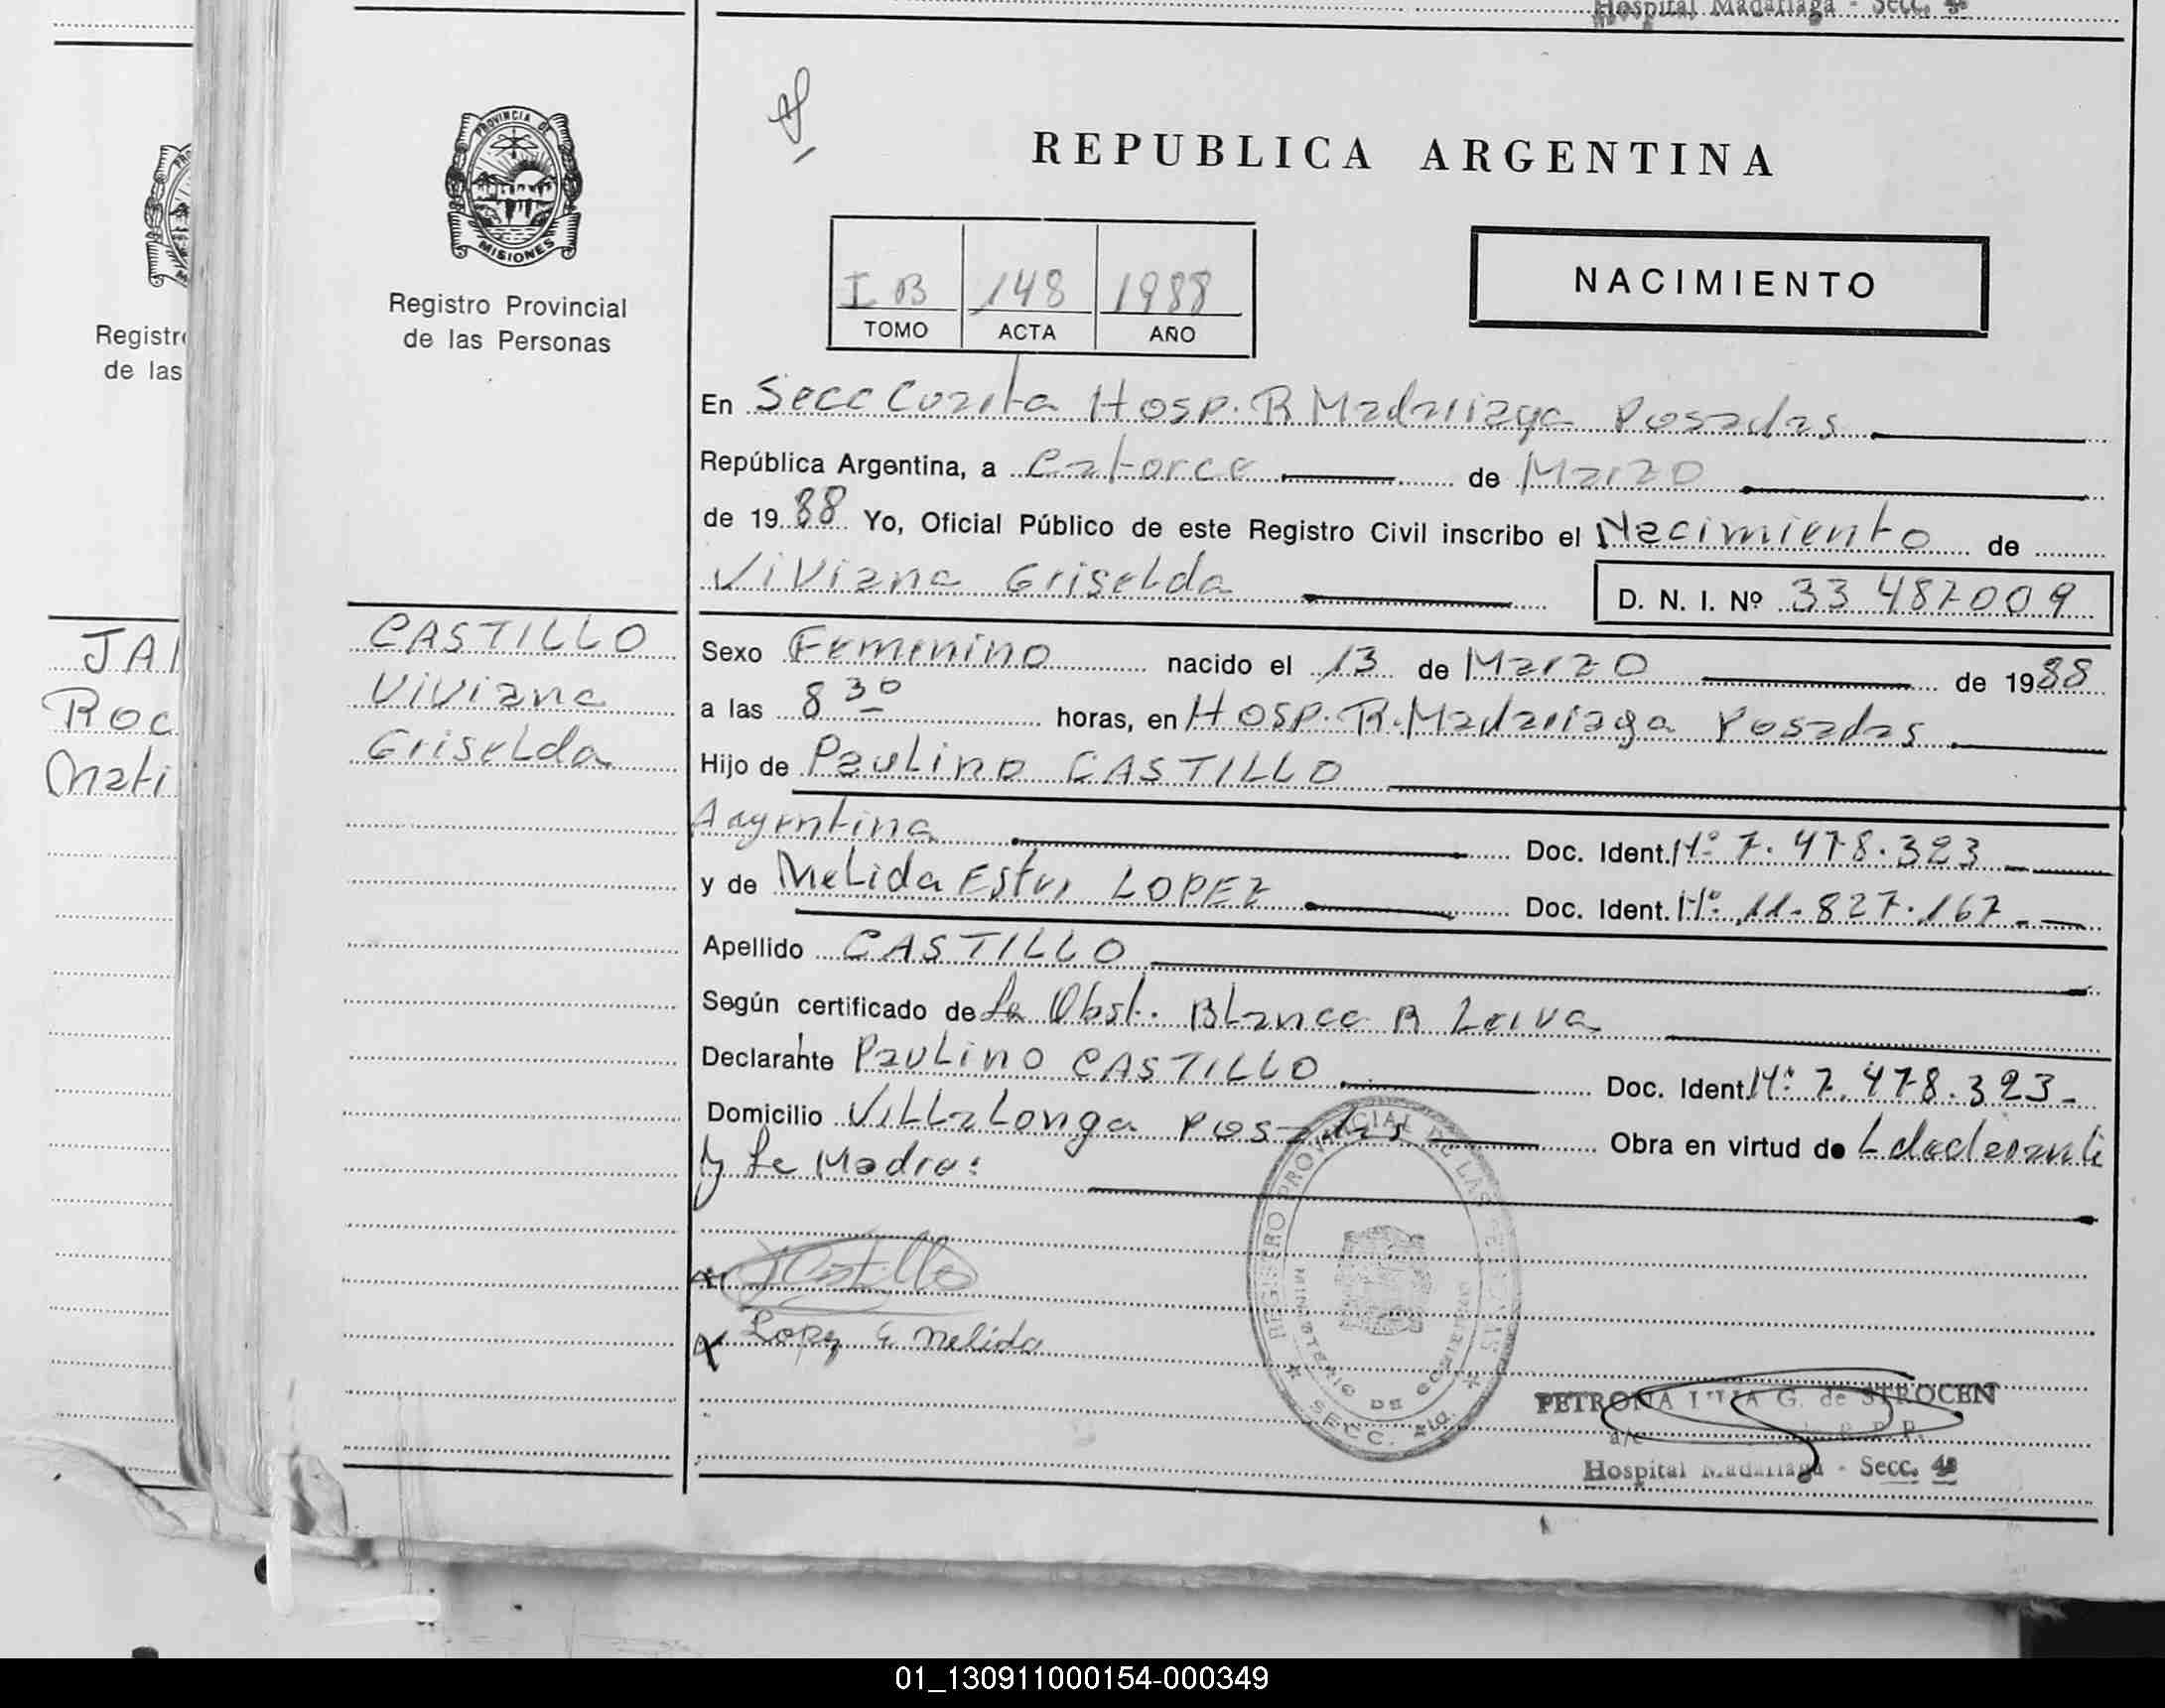 Hospital Madariaga - Secc. 4ª
PROVINCIA DE
MISIONES
Registro Provincial
de las Personas
REPUBLICA ARGENTINA
I B 148 1988
TOMO ACTA AÑO
NACIMIENTO
En Secc Cuarta Hosp. R Madariaga Posadas
República Argentina, a Catorce de Marzo
de 1988 Yo, Oficial Público de este Registro Civil inscribo el Nacimiento de
Viviana Griselda
D. N. I. Nº 33 487009
Sexo Femenino nacido el 13 de Marzo de 1988
a las 8 30 horas, en Hosp. R. Madariaga Posadas
Hijo de Paulino CASTILLO
Argentina Doc. Ident. Nº 7.478.323
y de Nelida Ester LOPEZ Doc. Ident. Nº 11.827.167
Apellido CASTILLO
Según certificado de La Obst. Blanca R Leiva
Declarante Paulino CASTILLO Doc. Ident. Nº 7.478.323
Domicilio Villalonga Posadas Obra en virtud de
y la Madre:
CASTILLO
Viviana
Griselda
Castillo
Lopez E Nelida
REGISTRO PROVINCIAL DE LAS PERSONAS
MINISTERIO DE GOBIERNO
SECC. 4ta.
PETRONA G. de STROCEN
a/c
Hospital Madariaga - Secc. 4ª
Registr
de las
JAI
Roc
Mati
01_130911000154-000349